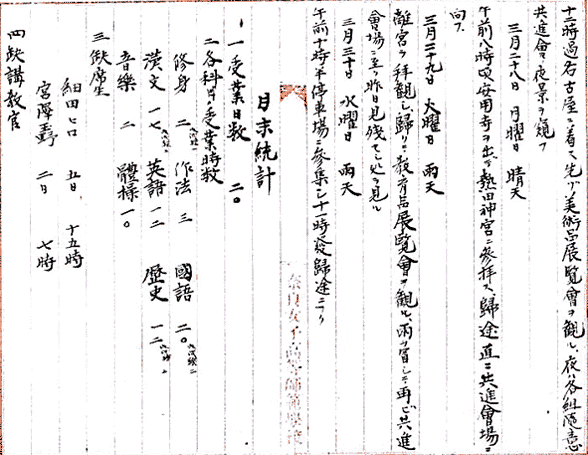 十二時過名古屋ニ着ス先ヅ美術品展覧會ヲ観ル、夜ハ各組随意
共進會ノ夜景ヲ観ル
三月二十八日 月曜日 晴天
午前八時頃安用寺ヲ出デ熱田神宮ニ参拝ス歸途直ニ共進會場ニ
向フ
三月二十九日 火曜日 雨天
離宮ヲ拝観シ歸リニ教育品展覧會ヲ観ル、雨ヲ冒シテ再ビ共進
會場ニ至リ昨日見残セシ処ヲ見ル
三月三十日 水曜日 雨天
午前十時半停車場ニ参集シ十一時発歸途ニツク
月末統計
一 受業日数 二〇
二 各科目ノ受業時数
修身 二 作法 三 國語 二〇
漢文 一七 英語 一二 歴史 一二
音樂 二 體操 一〇
三 缺席生
細田ヒロ 五日 十五時
宮澤 二日 七時
四 缺講教官
奈良女子高等師範學校